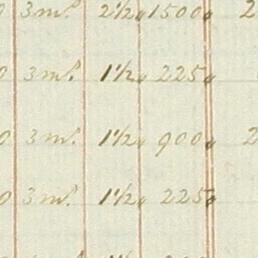 0 3 ms. 2 1/2 1500 2
0 3 ms. 1 1/2 225
0 3 ms. 1 1/2 900 2
0 3 ms. 1 1/2 225